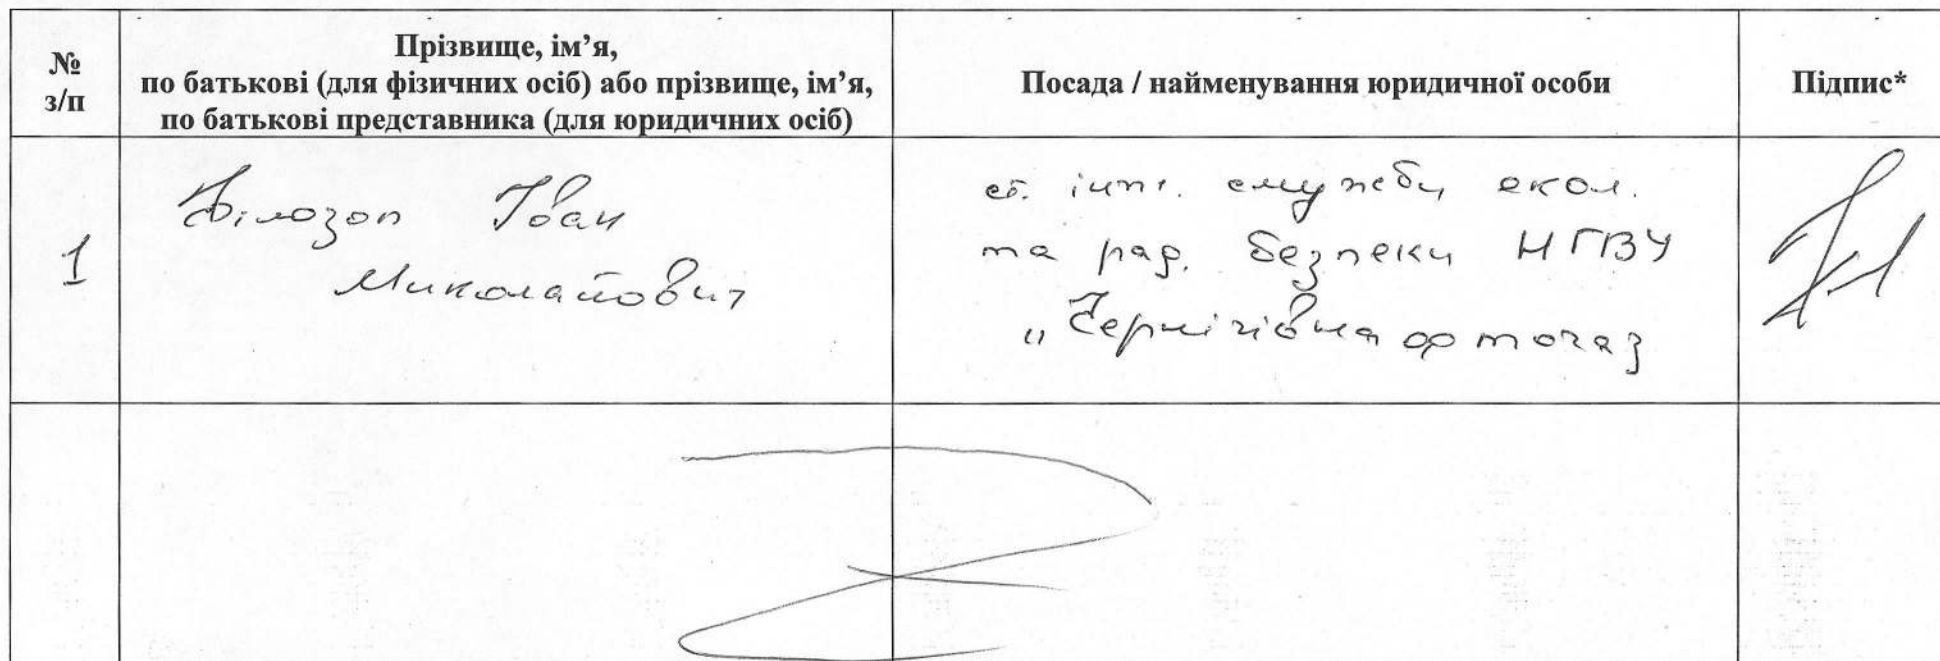 №
з/п
Прізвище, ім’я,
по батькові (для фізичних осіб) або прізвище, ім’я,
по батькові представника (для юридичних осіб)
Посада / найменування юридичної особи
Підпис*
1
Білозор Іван
Миколайович
ст. інж. служби екол.
та рад. безпеки НГВУ
„Чернігівнафтогаз